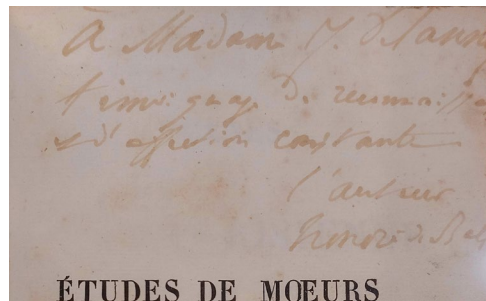 à Madame J. Delann
témoignage de reconnaissa
et d'affection constante
l'auteur
honoré de Bal
ÉTUDES DE MŒURS